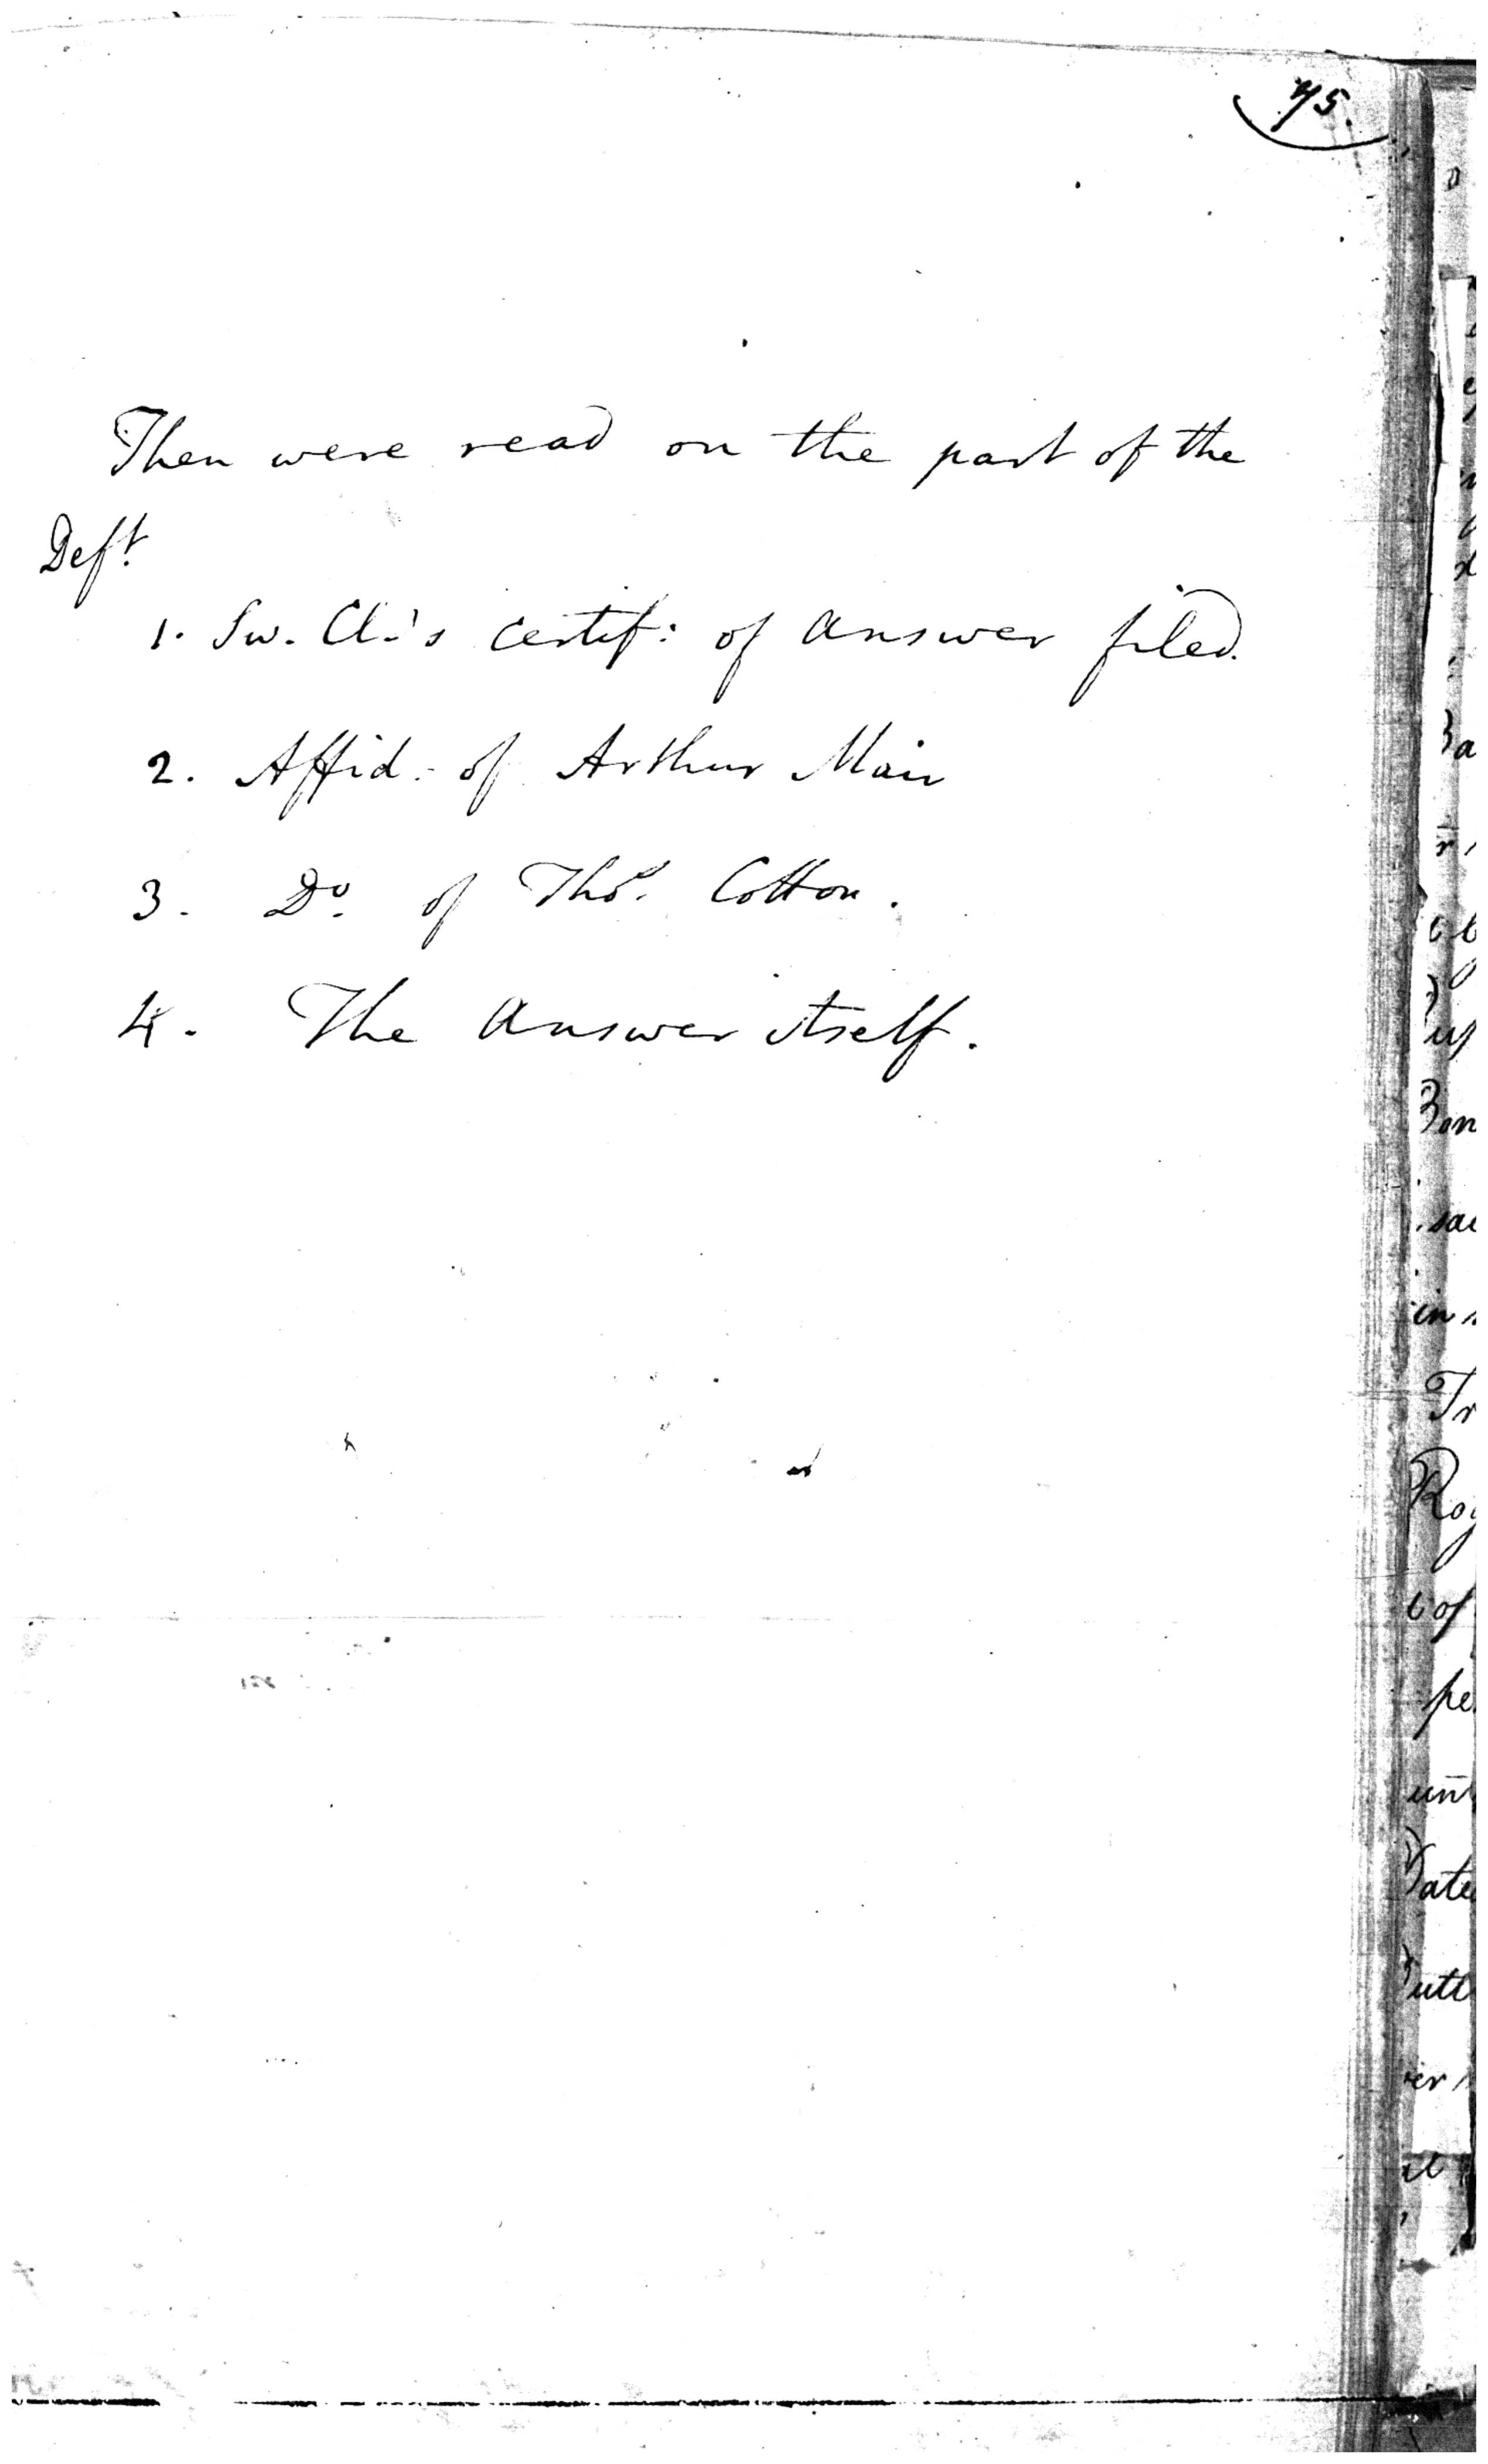 75.
Then were read on the part of the
Deft.
1. Sw. Cl.'s Certif: of Answer filed.
2. Affid. of Arthur Mair
3. Do. of Thos. Cotton.
4. The Answer itself.